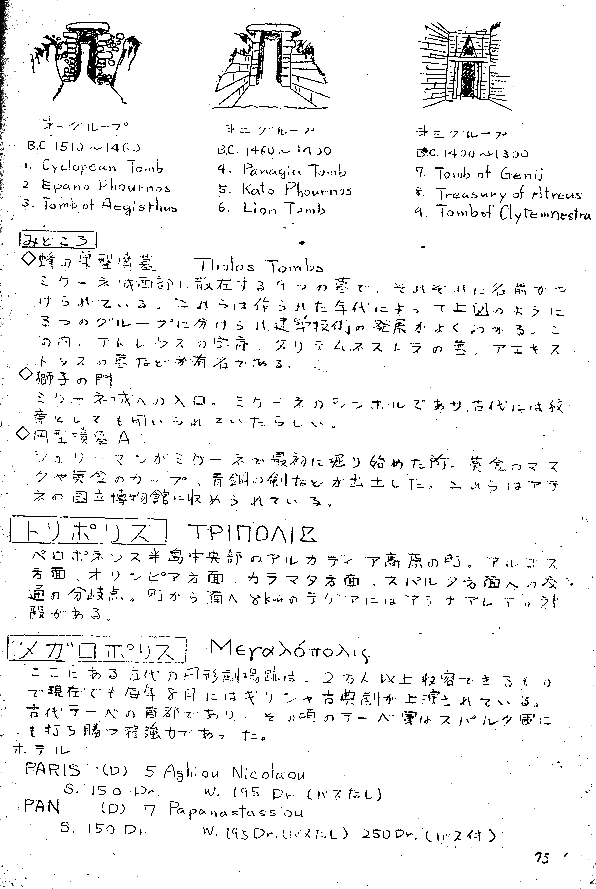 第一グループ
B.C. 1510〜1460
1. Cyclopean Tomb
2 Epano Phournos
3. Tomb of Aegisthus
第二グループ
B.C. 1460〜1400
4. Panagia Tomb
5. Kato Phournos
6. Lion Tomb
第三グループ
B.C. 1400〜1300
7. Tomb of Genij
8. Treasury of Atreus
9. Tomb of Clytemnestra
みどころ
◇蜂の巣型墳墓 Tholos Tombs
ミケーネ城西部に散在する9つの墓で、それぞれに名前がつ
けられている。これらは作られた年代によって上図のように
3つのグループに分けられ建築技術の発展がよくわかる。こ
の内、アトレウスの宝庫、クリテムネストラの墓、アエギス
トウスの墓などが有名である。
◇獅子の門
ミケーネ城への入口。ミケーネのシンボルであり、古代には紋
章としても用いられていたらしい。
◇円型墳墓A
シュリーマンがミケーネで最初に掘り始めた所。黄金のマス
クや黄金のカップ、青銅の剣などが出土した。これらはアテ
ネの国立博物館に収められている。
トリポリス ΤΡΙΠΟΛΙΣ
ペロポネソス半島中央部のアルカディア高原の町。アルゴス
方面、オリンピア方面、カラマタ方面、スパルタ方面への交
通の分岐点。町から南へ8kmのテゲアにはアテナアレアの神
殿がある。
メガロポリス Μεγαλόπολις
ここにある古代の円形劇場跡は、2万人以上収容できるもの
で現在でも毎年8月にはギリシャ古典劇が上演されている。
古代テーベの首都であり、その頃のテーベ軍はスパルタ軍に
も打ち勝つ程強力であった。
ホテル
PARIS (D) 5 Aghiou Nicolaou
S. 150 Dr. W. 195 Dr. (バスなし)
PAN (D) 7 Papanastassiou
S. 150 Dr. W. 195 Dr. (バスなし) 250 Dr. (バス付)
75